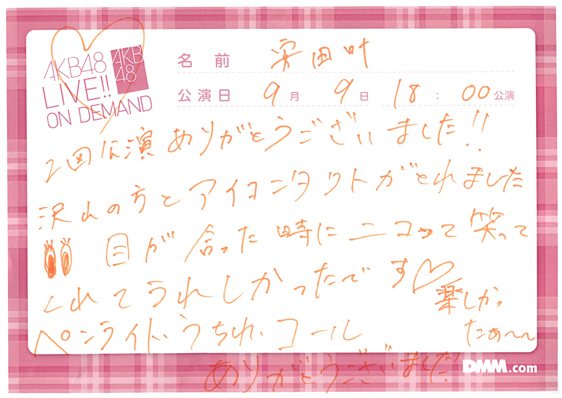 AKB48
LIVE!!
ON DEMAND
AKB
48
名前 安田叶
公演日 9月 9日 18:00公演
2回公演ありがとうございました!!
沢山の方とアイコンタクトがとれました
目が合った時にニコって笑って
くれてうれしかったです♡
楽しかっ
たぁ〜〜
ペンライト、うちわ、コール
ありがとうございました!
DMM.com